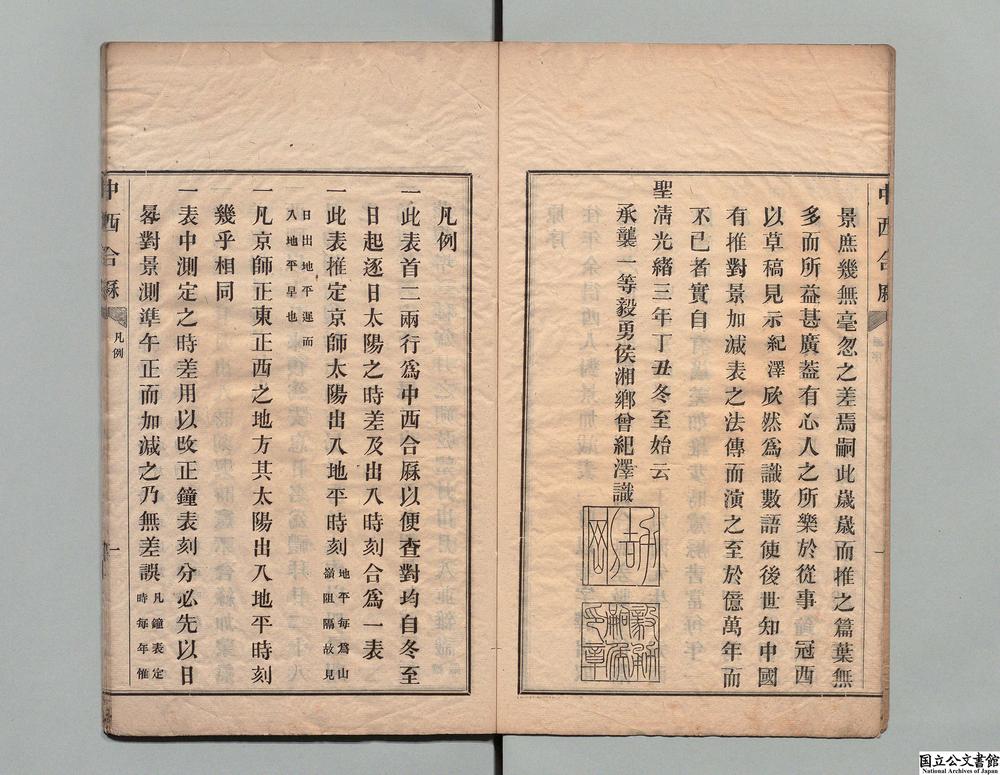 景庶幾無毫忽之差焉嗣此歲歲而推之篇葉無
多而所益甚廣蓋有心人之所樂於從事冠西
以草稿見示紀澤欣然爲識數語使後世知中國
有推對景加減表之法傳而演之至於億萬年而
不已者實自
聖清光緒三年丁丑冬至始云
承襲一等毅勇侯湘鄉曾紀澤識
中西合厤
凡例
一此表首二兩行爲中西合厤以便查對均自冬至
日起逐日太陽之時差及出入時刻合爲一表
一此表推定京師太陽出入地平時刻地平每爲山嶺阻隔故見
日出地平遲而入地平早也
一凡京師正東正西之地方其太陽出入地平時刻
幾乎相同
一表中測定之時差用以改正鐘表刻分必先以日
晷對景測準午正而加減之乃無差誤凡鐘表定時每年惟
中西合厤
凡例
一
国立公文書館
National Archives of Japan